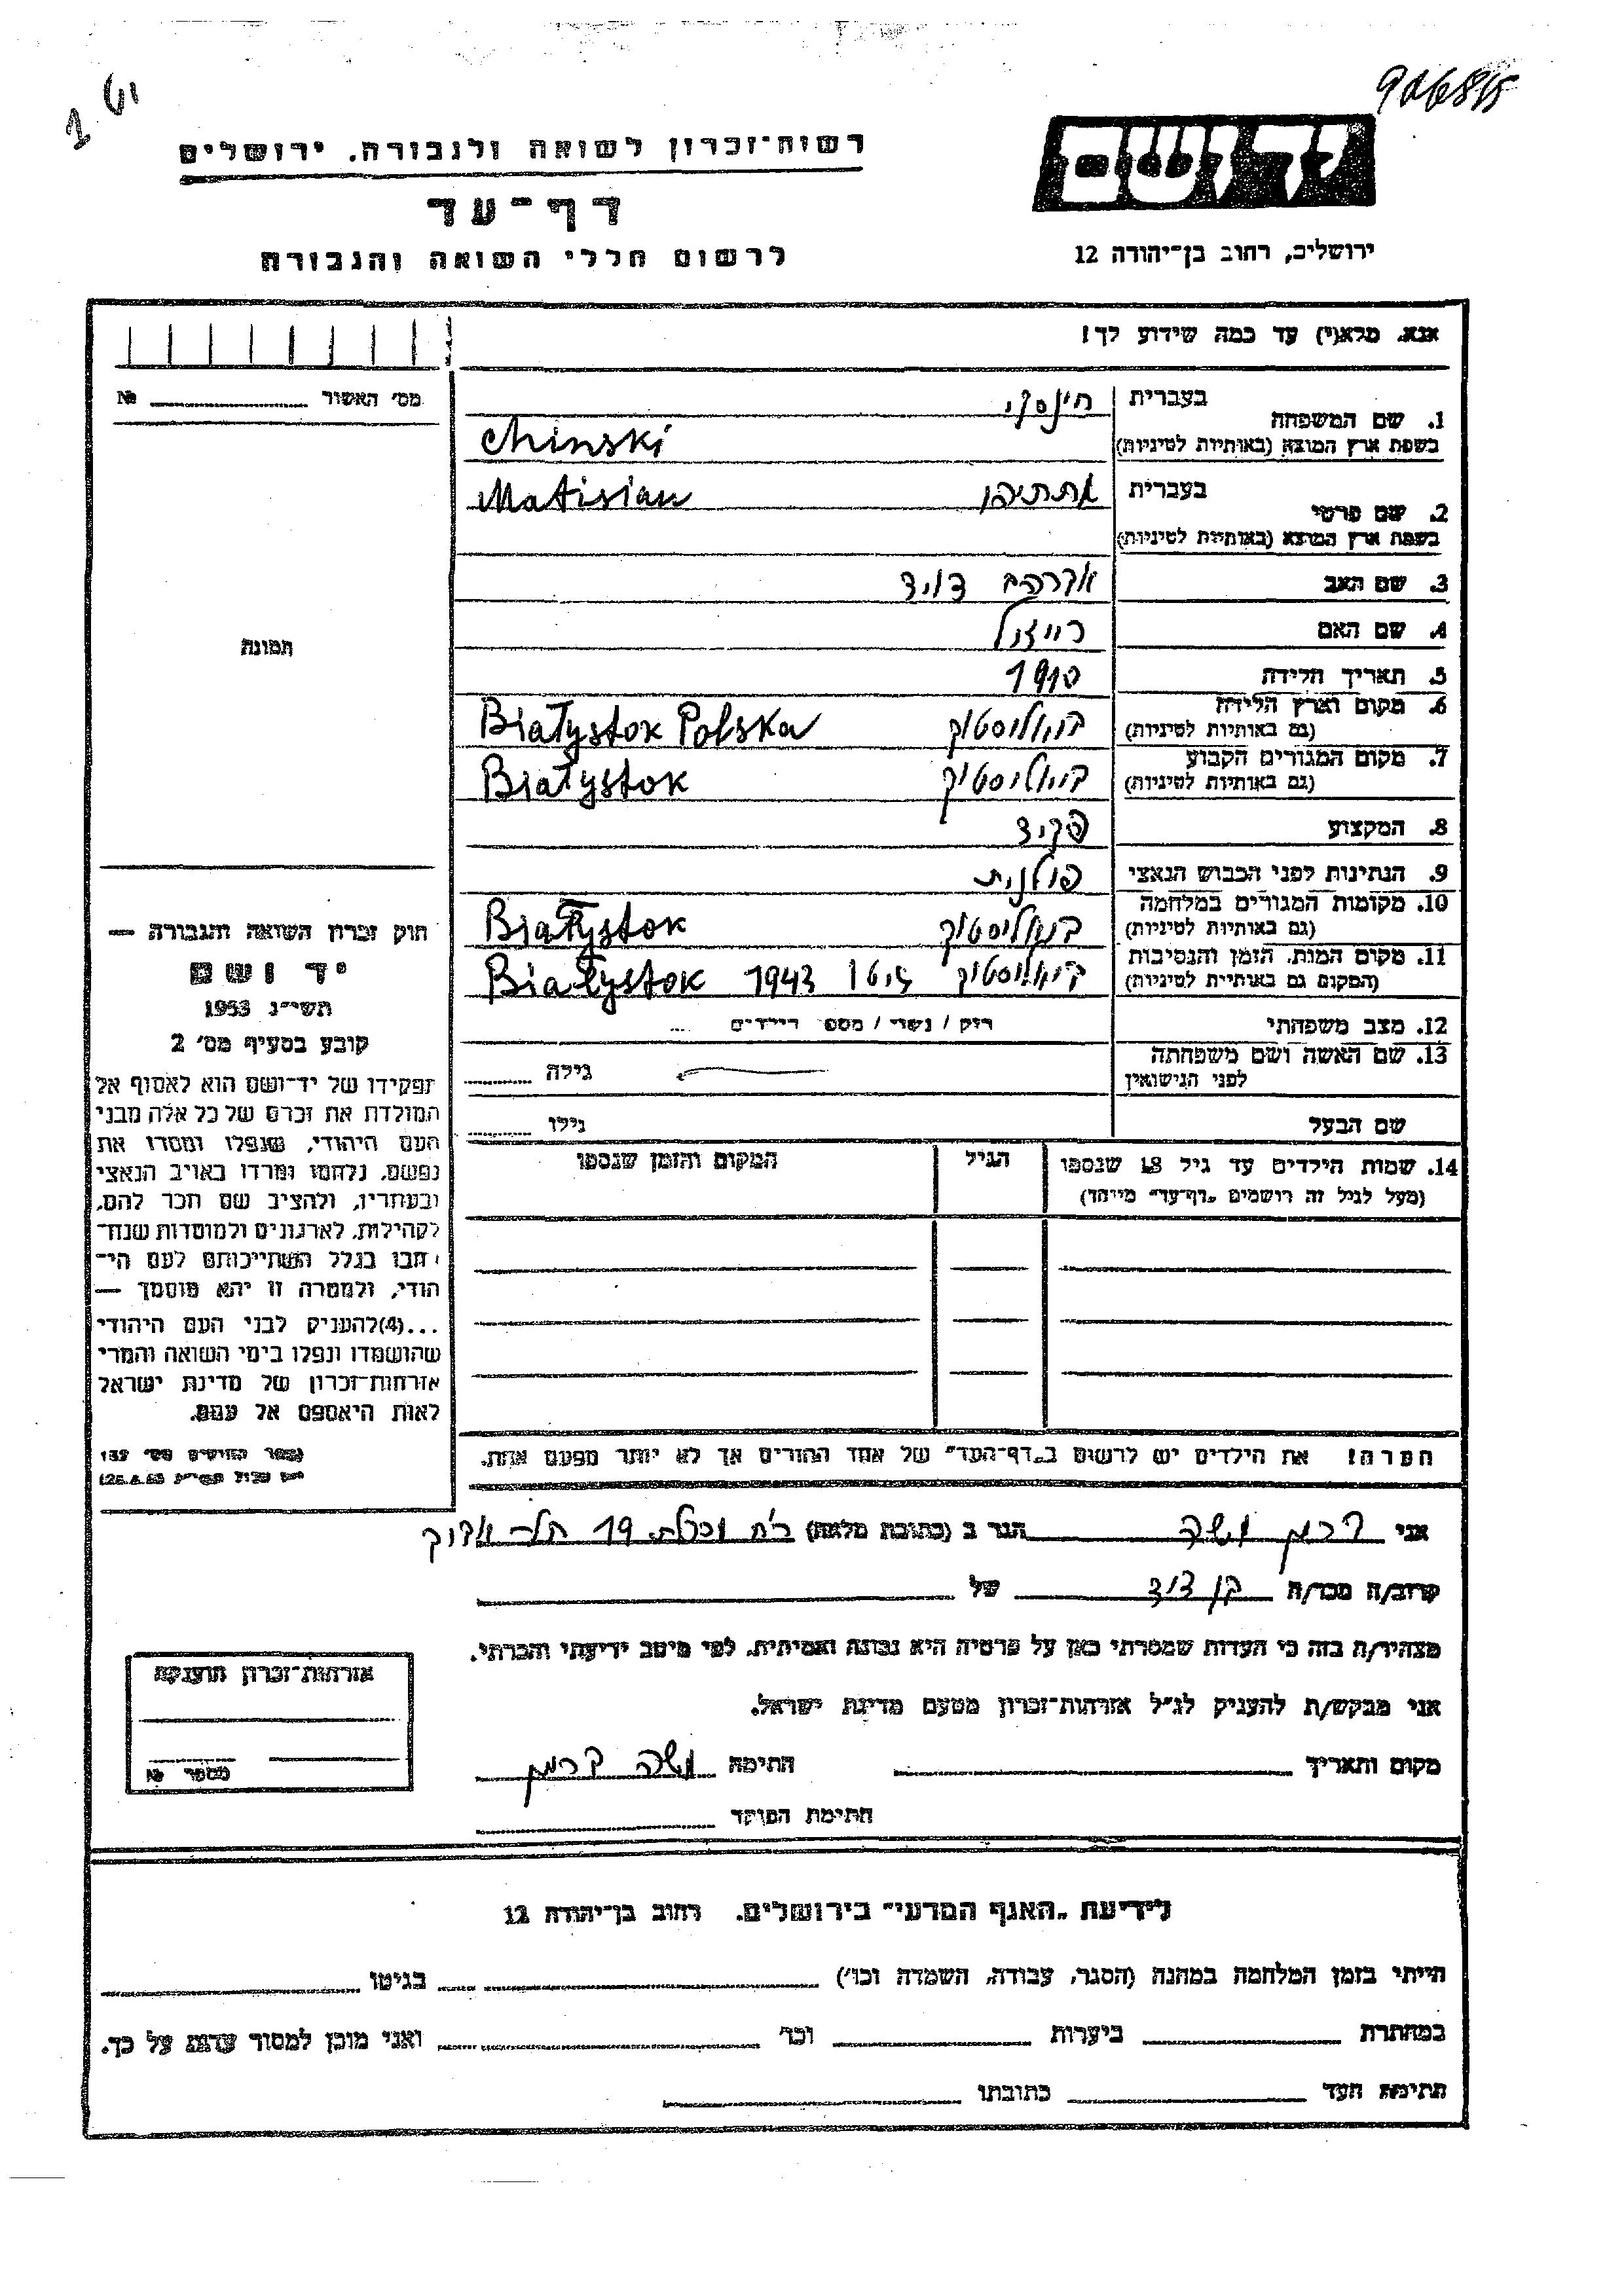 906815
רשות־זכרון לשואה ולגבורה. ירושלים
דף־עד
לרשום חללי השואה והגבורה
יד ושם
ירושלים, רחוב בן־יהודה 12
אנא, מלא(י) עד כמה שידוע לך!
מס׳ האשור №
1. שם המשפחה בעברית חינסקי
בשפת ארץ המוצא (באותיות לטיניות) Chinski
2. שם פרטי בעברית מתתיהו Matisian
בשפת ארץ המוצא (באותיות לטיניות)
3. שם האב אברהם דויד
4. שם האם רייזל
5. תאריך הלידה 1910
6. מקום וארץ הלידה (גם באותיות לטיניות) ביאליסטוק Białystok Polska
7. מקום המגורים הקבוע (גם באותיות לטיניות) ביאליסטוק Białystok
8. המקצוע פקיד
9. הנתינות לפני הכבוש הנאצי פולנית
10. מקומות המגורים במלחמה (גם באותיות לטיניות) ביאליסטוק Białystok
11. מקום המות, הזמן והנסיבות (המקום גם באותיות לטיניות) ביאליסטוק גיטו 1943 Białystok
12. מצב משפחתי רוק / נשוי / מספר הילדים
13. שם האשה ושם משפחתה לפני הנישואין גילה
שם הבעל גילו
14. שמות הילדים עד גיל 18 שנספו הגיל המקום והזמן שנספו
(מעל לגיל זה רושמים "דף־עד" מיוחד)
תמונה
חוק זכרון השואה והגבורה —
יד ושם
תשי״ג 1953
קובע בסעיף מס׳ 2
תפקידו של יד־ושם הוא לאסוף אל
המולדת את זכרם של כל אלה מבני
העם היהודי, שנפלו ומסרו את
נפשם, נלחמו ומרדו באויב הנאצי
ובעוזריו, ולהציב שם וזכר להם,
לקהילות, לארגונים ולמוסדות שנח־
רבו בגלל השתייכותם לעם הי־
הודי, ולמטרה זו יהא מוסמך —
...(4)להעניק לבני העם היהודי
שהושמדו ונפלו בימי השואה והמרי
אזרחות־זכרון של מדינת ישראל
לאות היאספם אל עמם.
הערה! את הילדים יש לרשום ב"דף־העד" של אחד ההורים אך לא יותר מפעם אחת.
אני ברמן משה הגר ב (כתובת מלאה) 19 תל־אביב
קרוב/ה מכר/ה בן דוד של
מצהיר/ה בזה כי העדות שמסרתי כאן על פרטיה היא נכונה ואמיתית, לפי מיטב ידיעתי והכרתי.
אני מבקש/ת להעניק לנ״ל אזרחות־זכרון מטעם מדינת ישראל.
מקום ותאריך חתימה משה ברמן
חתימת הפוקד
אזרחות־זכרון הוענקה
מספר №
לידיעת "האגף המדעי" בירושלים. רחוב בן־יהודה 12
הייתי בזמן המלחמה במחנה (הסגר, עבודה, השמדה וכו׳) בגיטו
במחתרת ביערות וכו׳ ואני מוכן למסור עדות על כך.
חתימת העד כתובתו